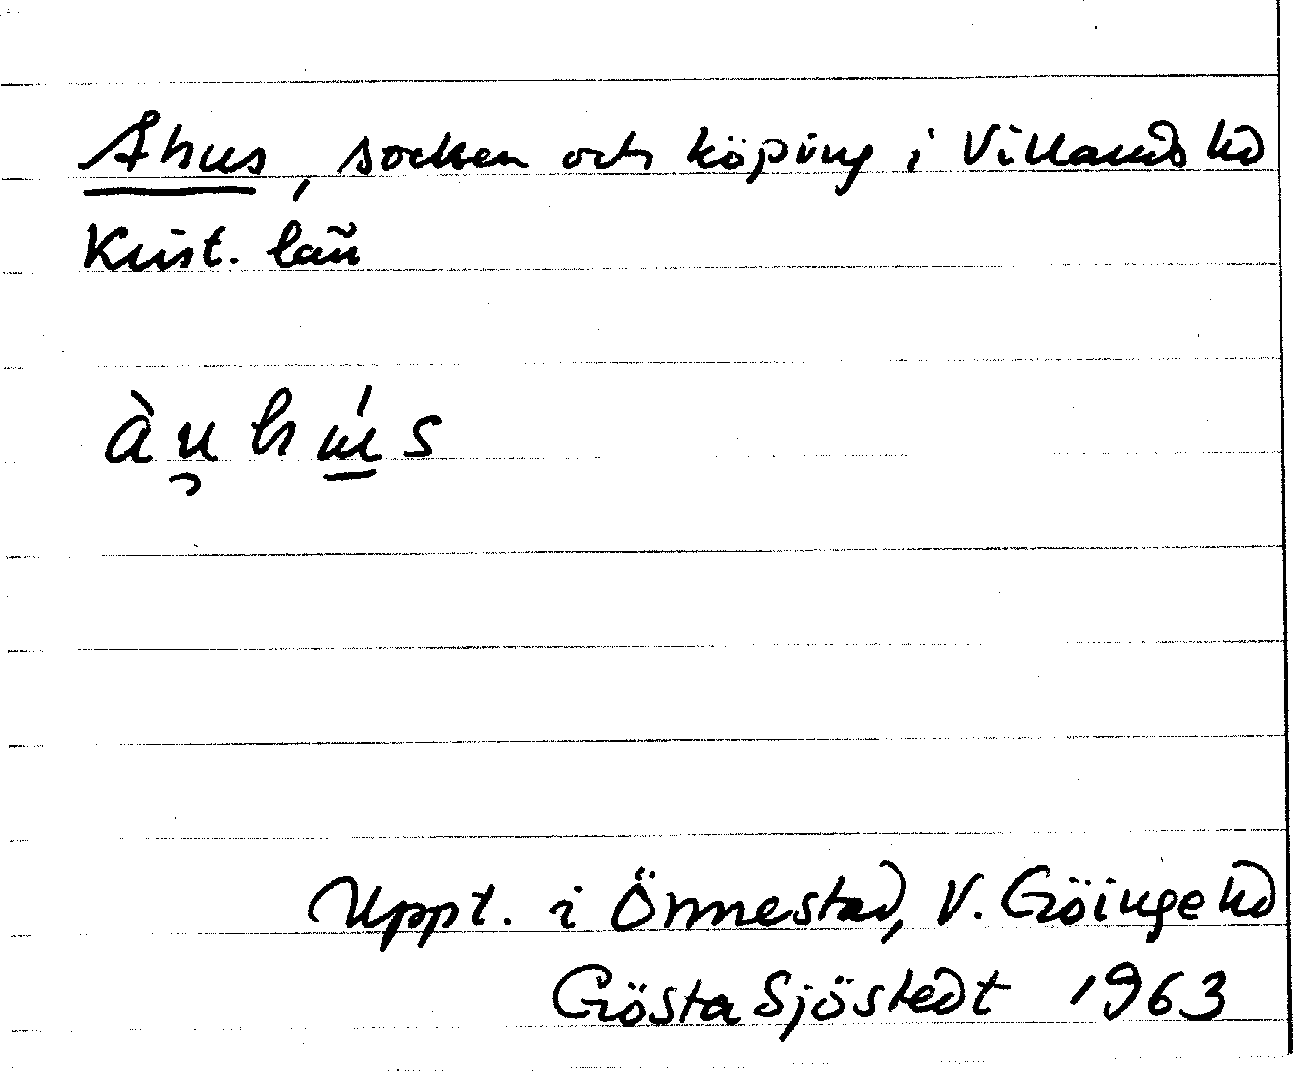 Åhus, socken och köping i Villands hd
Krist. län
àu̯hú̲s
Uppt. i Önnestad, V. Göinge hd
Gösta Sjöstedt 1963